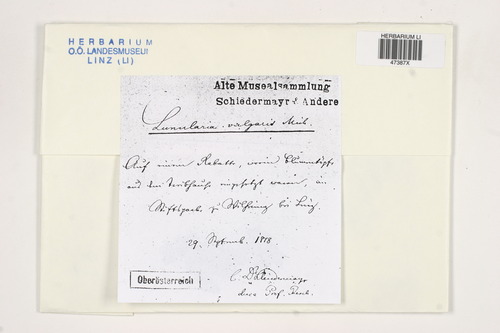 HERBARIUM
O.Ö. LANDESMUSEUM
LINZ (LI)
HERBARIUM LI
47387X
Alte Musealsammlung
Schiedermayr & Andere
Lunularia vulgaris Mich.
Auf einem Rabatte, worin Blumentöpfe
aus dem Treibhause eingesetzt waren, im
Stiftspark zu Wilhering bei Linz.
29. Septemb. 1878.
C. Dr. Schiedermayr
Oberösterreich